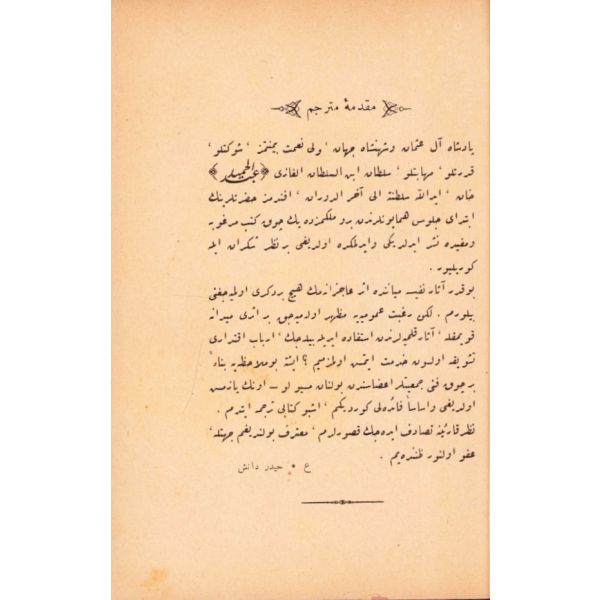 مقدمهٔ مترجم
پادشاه آل عثمان وشهنشاه جهان ٬ ولی نعمت بیمنتمز ٬ شوکتلو ٬
قدرتلو ٬ مهابتلو ٬ سلطان ابن السلطان الغازی ﴿ عبد الحمید ﴾
خان ٬ ایدالله سلطنته الی آخر الدوران ٬ افندمز حضرتلرینك
ابتدای جلوس همایونلرندن برو ملکمزده پك چوق کتب مرغوبه
ومفیده نشر ایدلدیکی وایدلمکده اولدیغی بر نظر شکران ایله
کوریلیور .
بو قدر آثار نفیسه میاننده اثر عاجزانه‌مك هیچ بر دکری اولمیه‌جغنی
بیلورم . لکن رغبت عمومیه‌یه مظهر اولمیه‌جق بر اثری میدانه
قویمقله ٬ آثار قلمیه‌لرندن استفاده ایدیله‌بیله‌جك ٬ ارباب اقتداری
تشویقه اولسون خدمت ایتمش اولمزمییم ؟ ایشته بو ملاحظه‌یه بناءً
بر چوق فنی جمعیتلر اعضاسندن بولنان مسیو لو — اونك یازمش
اولدیغی واساساً فائده‌لی کوردیکم ٬ اشبو کتابی ترجمه ایتدم .
نظر قارئینه تصادف ایده‌جك قصورلرم ٬ معترف بولندیغم جهتله ٬
عفو اولنور ظننده‌یم .
ع . حیدر دانش